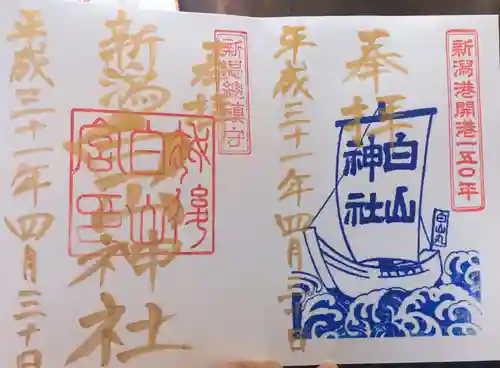 新潟港開港一五〇年
奉拝
白山
神社
白山丸
平成三十一年四月三十日
新潟総鎮守
奉拝
新潟一宮
白山神社
平成三十一年四月三十日